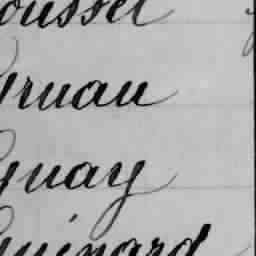 ousset
Gruau
Guay
Guinard